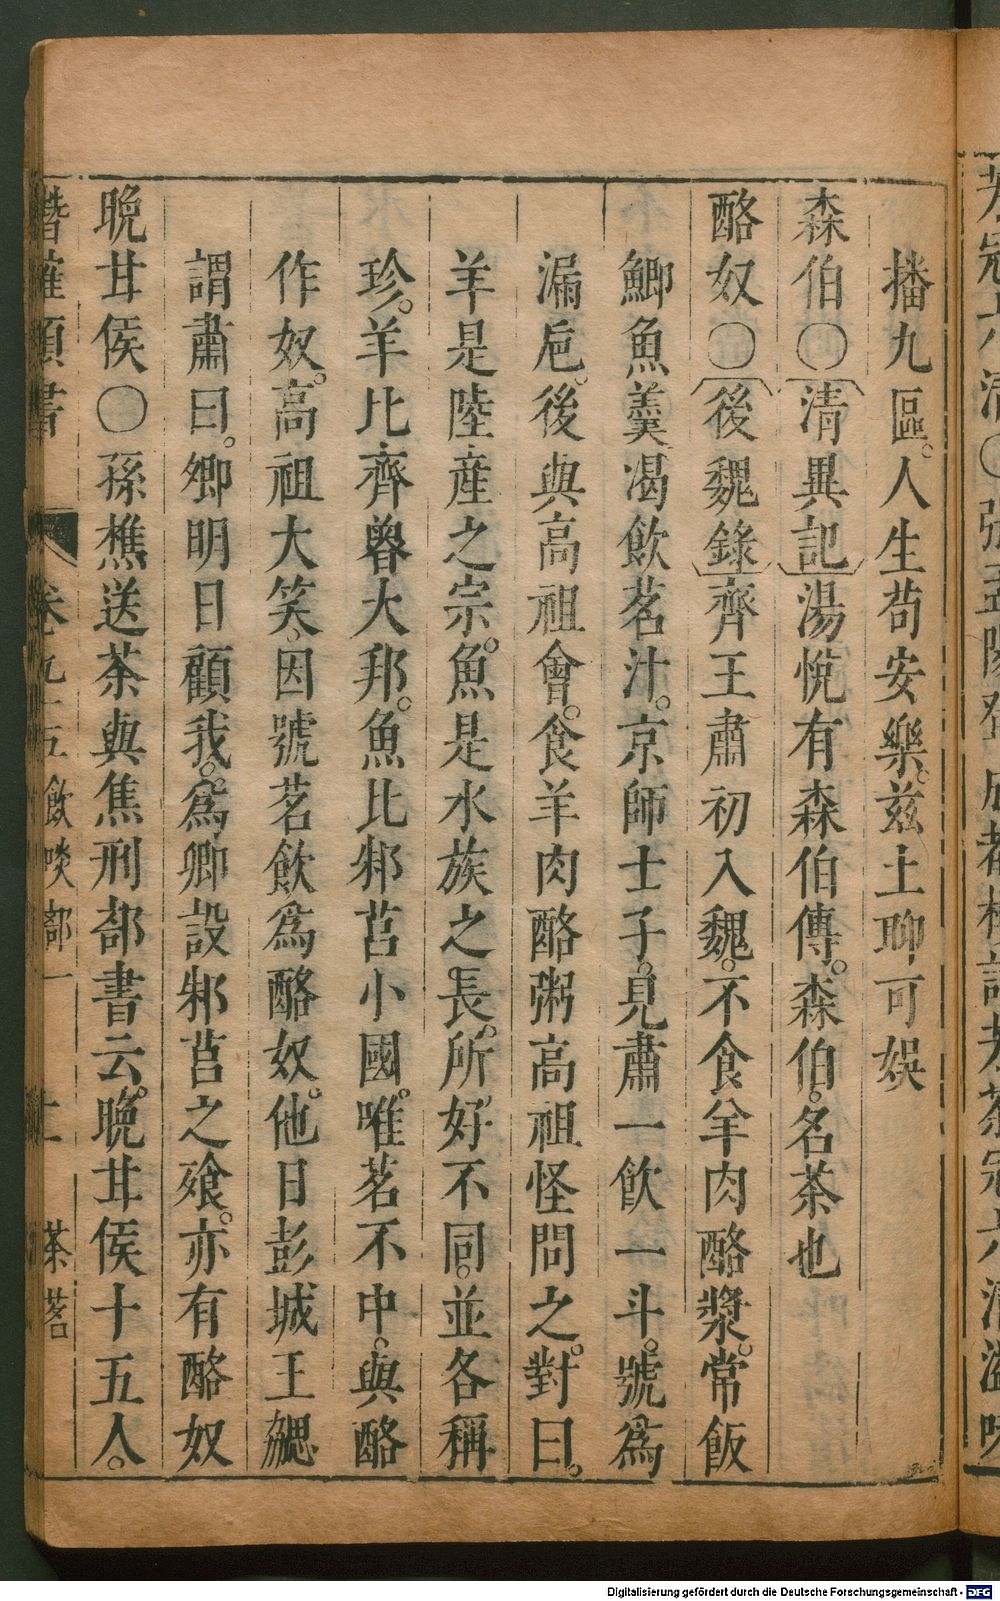 播九區。人生苟安樂。茲土聊可娛
森伯〇清異記湯悅有森伯傳。森伯。名茶也
酪奴〇後魏錄齊王肅初入魏。不食羊肉酪漿。常飯
鯽魚羹渴飲茗汁。京師士子。見肅一飲一斗。號為
漏巵。後與高祖會。食羊肉酪粥高祖怪問之。對曰。
羊是陸產之宗。魚是水族之長。所好不同。並各稱
珍。羊比齊魯大邦。魚比邾莒小國。唯茗不中。與酪
作奴。高祖大笑。因號茗飲為酪奴。他日彭城王勰
謂肅曰。卿明日顧我。為卿設邾莒之飧。亦有酪奴
晚甘侯〇孫樵送茶與焦刑部書云。晚甘侯十五人。
潛確類書 卷九十五飲啖部一 茶茗
Digitalisierung gefördert durch die Deutsche Forschungsgemeinschaft - DFG